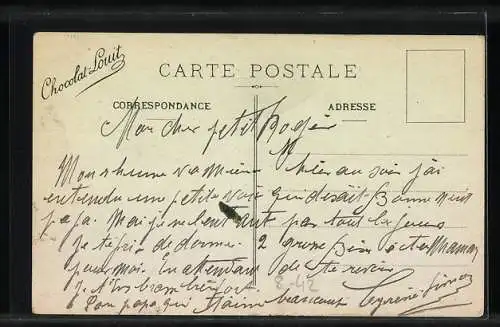 Chocolat Louit
CARTE POSTALE
CORRESPONDANCE
ADRESSE
Mon cher petit Roger
Mon rhume va mieux hier au soir j'ai
entendu une petite voix qui disait Bonne nuit
papa. Mais je ne l'entend pas tous les jours
Je te prie de donner 2 grosses bises à ta Maman
pour moi. En attendant de te revoir
Ton papa qui t'aime beaucoup
8-42